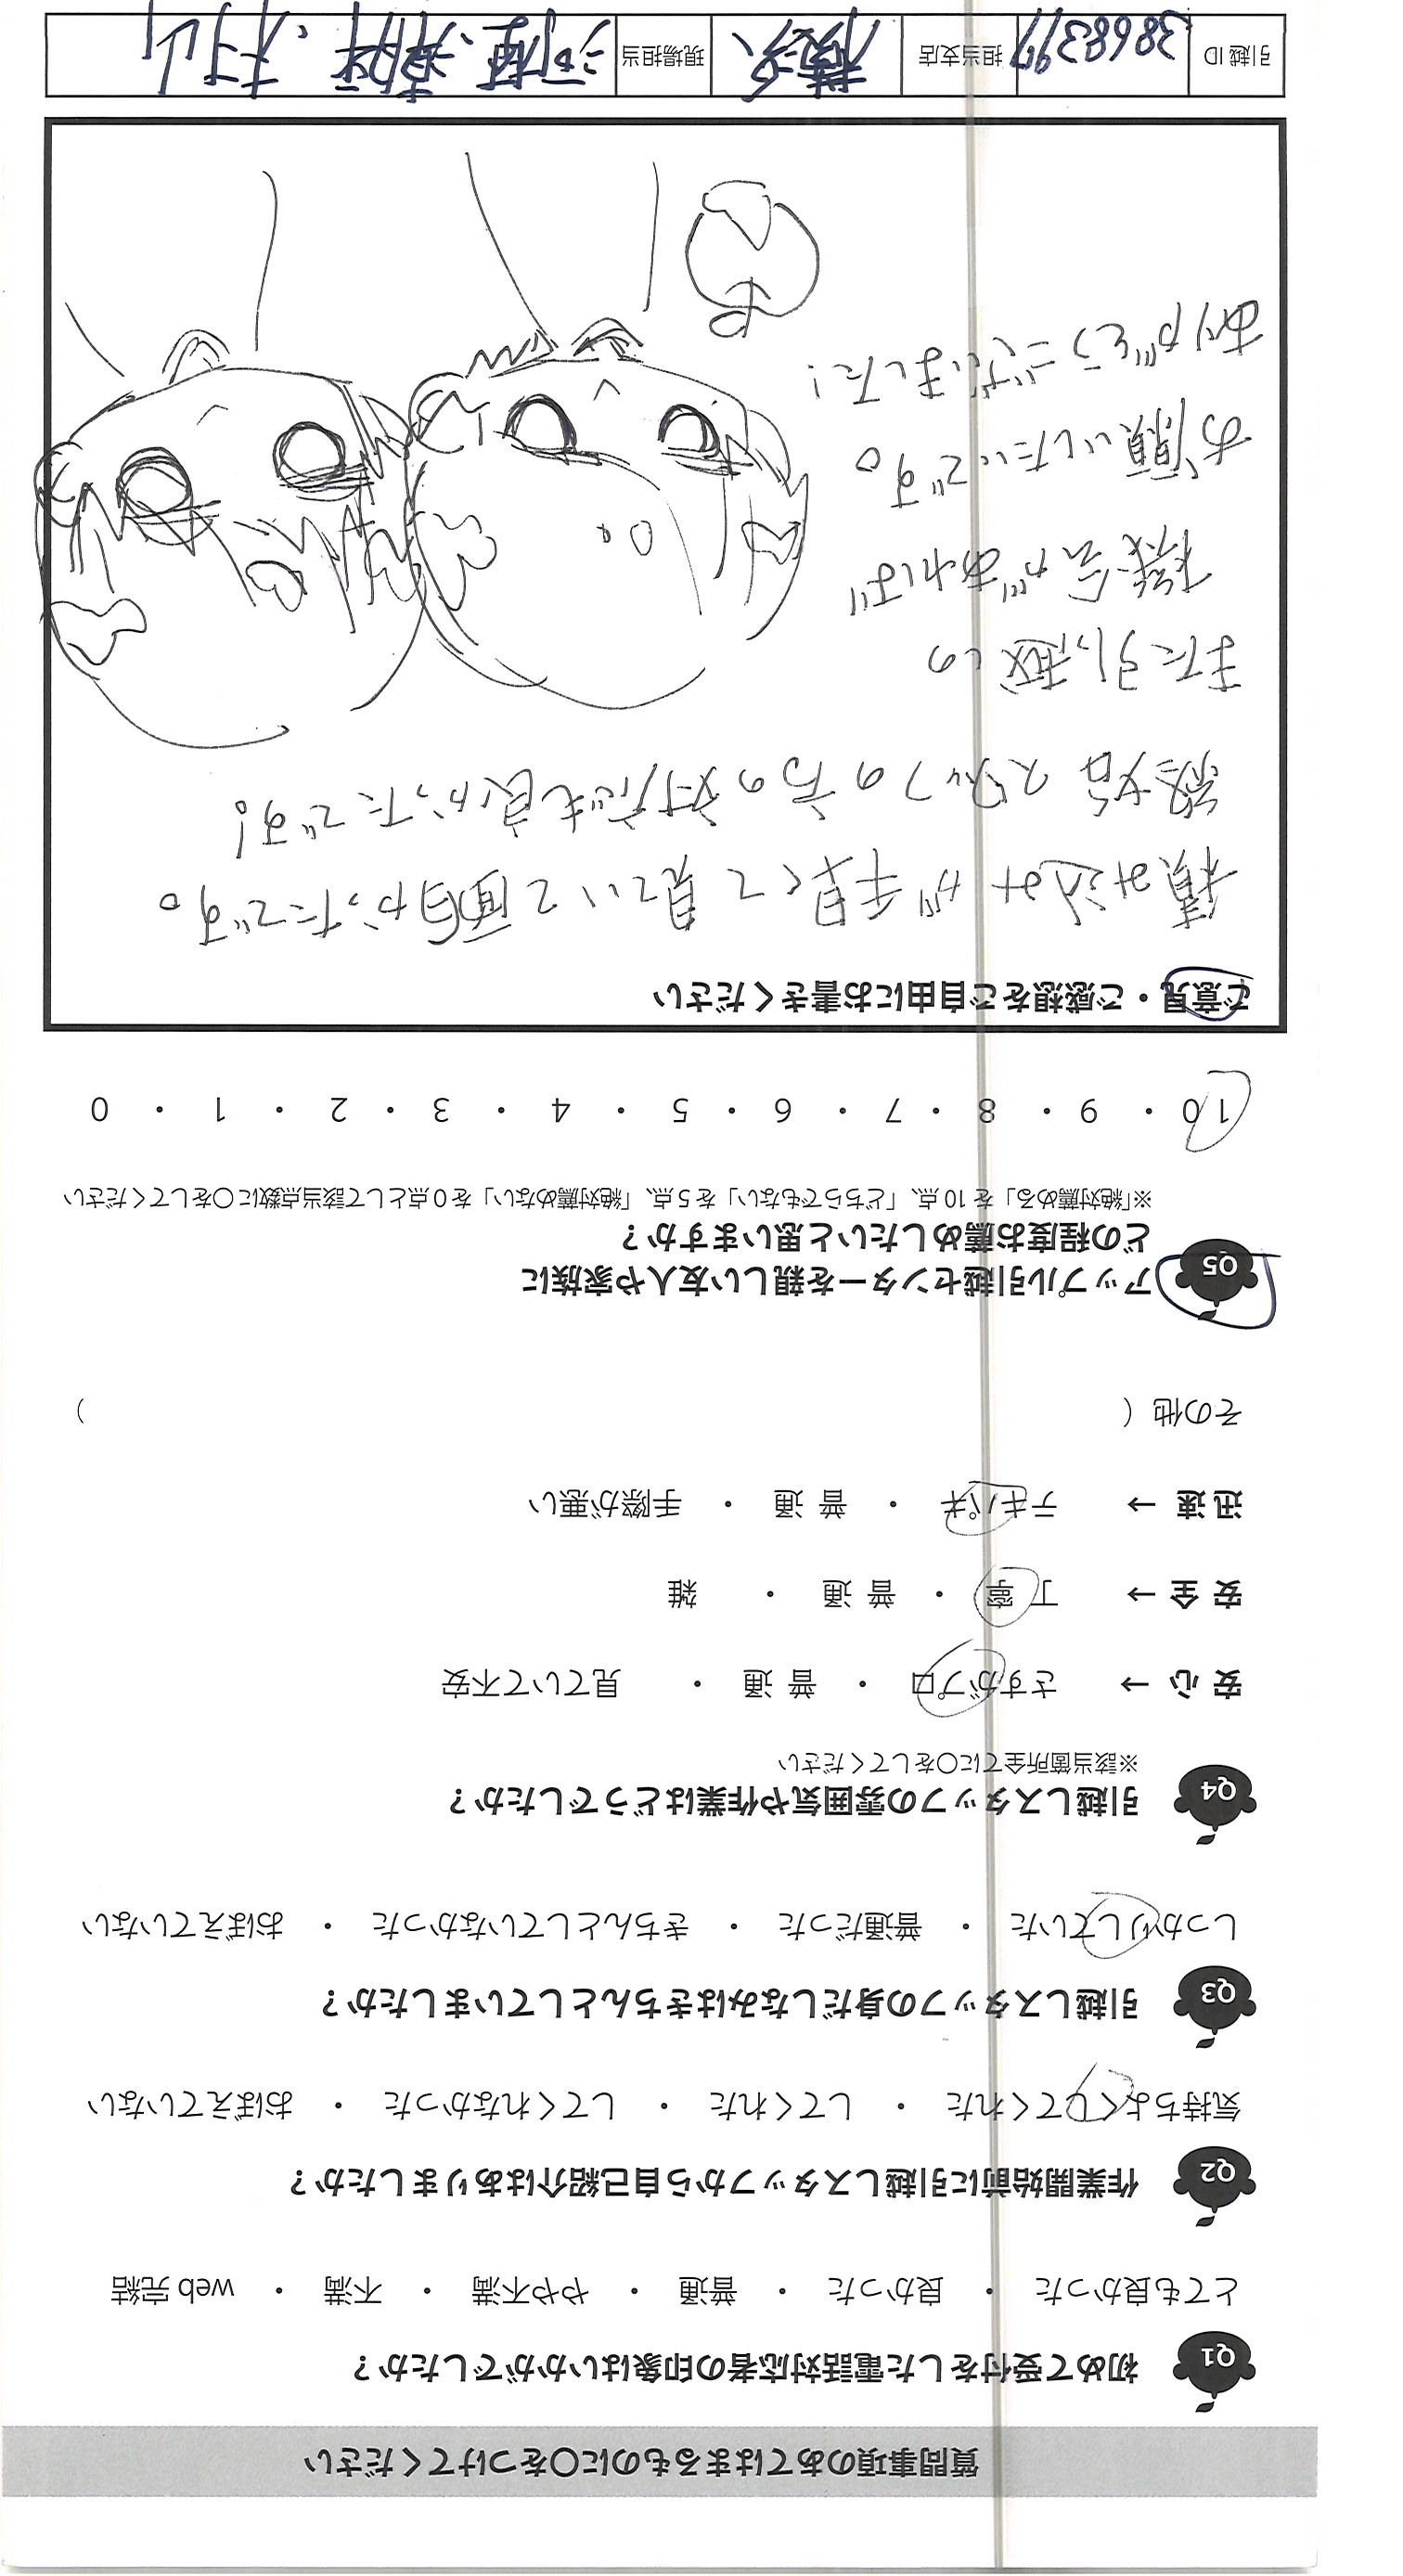 質問事項のあてはまるものに〇をつけてください
Q1 初めて受付をした電話対応者の印象はいかがでしたか？
とても良かった ・ 良かった ・ 普通 ・ やや不満 ・ 不満 ・ web 完結
Q2 作業開始前に引越しスタッフから自己紹介はありましたか？
気持ちよくしてくれた ・ してくれた ・ してくれなかった ・ おぼえていない
Q3 引越しスタッフの身だしなみはきちんとしていましたか？
しっかりしていた ・ 普通だった ・ きちんとしていなかった ・ おぼえていない
Q4 引越しスタッフの雰囲気や作業はどうでしたか？
※該当箇所全てに〇をしてください
安 心 → さすがプロ ・ 普 通 ・ 見ていて不安
安 全 → 丁 寧 ・ 普 通 ・ 雑
迅 速 → テキパキ ・ 普 通 ・ 手際が悪い
その他（ ）
Q5 アップル引越センターを親しい友人や家族に
どの程度お薦めしたいと思いますか？
※「絶対薦める」を 10 点、「どちらでもない」を 5 点、「絶対薦めない」を 0 点として該当点数に〇をしてください
10 ・ 9 ・ 8 ・ 7 ・ 6 ・ 5 ・ 4 ・ 3 ・ 2 ・ 1 ・ 0
ご意見・ご感想をご自由にお書きください
積み込みが手早くて見ていて面白かったです。
終始スタッフの方の対応も良かったです！
また引っ越しの
機会があれば
お願いしたいです。
ありがとうございました！
引越 ID 3868397 担当支店 横浜 現場担当 村山